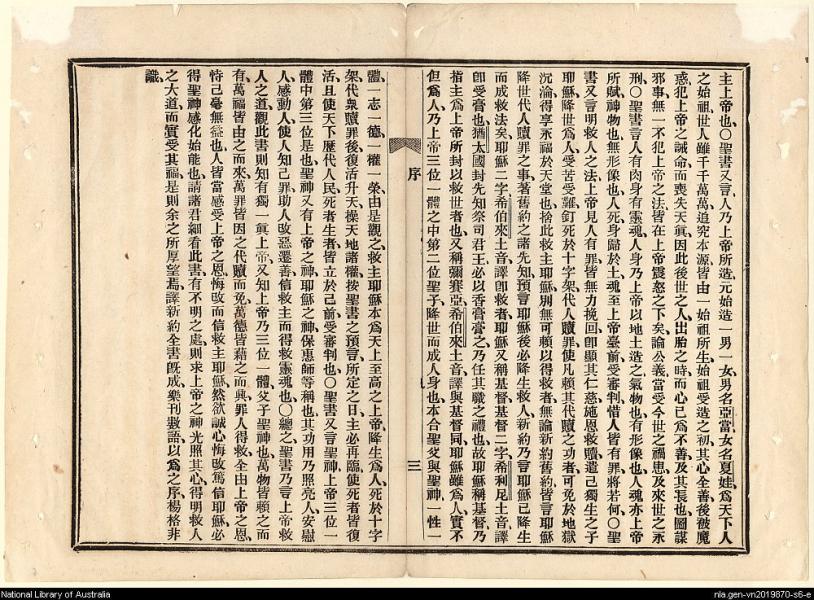 主上帝也、〇聖書又言、人乃上帝所造、元始造一男一女、男名亞當、女名夏娃、爲天下人
之始祖、世人雖千千萬萬、追究本源、皆由一始祖所生、始祖受造之初、其心全善、後被魔
惑、犯上帝之誡命、而喪失天眞、因此後世之人、出胎之時、而心已爲不善、及其長也、圖謀
邪事、無一不犯上帝之法、皆在上帝震怒之下矣、論公義當受今世之禍患、及來世之永
刑、〇聖書言、人有肉身、有靈魂、人身乃上帝以地土造之、氣物也、有形像也、人魂亦上帝
所賦、神物也、無形像也、人死身歸於土、魂至上帝臺前受審判、惜人皆有罪、將若何、〇聖
書又言明救人之法、上帝見人有罪、皆無力挽回、卽顯其仁慈、施恩救贖、遣己獨生之子
耶穌、降世爲人、受苦受難、釘死於十字架、代人贖罪、使凡賴其代贖之功者、可免於地獄
沉淪、得享永福於天堂也、捨此救主耶穌、別無可賴以得救者、無論新約舊約、皆言耶穌
降世代人贖罪之事、著舊約之諸先知、預言耶穌後必降生救人、新約乃言耶穌已降生
而成救法矣、耶穌二字、希伯來土音、譯卽救者、耶穌又稱基督、基督二字、希利尼土音、譯
卽受膏也、猶太國封先知祭司君王、必以香膏膏之、乃任其職之禮也、故耶穌稱基督、乃
指主爲上帝所封以救世者也、又稱彌賽亞、希伯來土音、譯與基督同、耶穌雖爲人、實不
但爲人、乃上帝三位一體之中、第二位聖子、降世而成人身也、本合聖父與聖神、一性一
序
三
體、一志一德、一權一榮、由是觀之、救主耶穌、本爲天上至高之上帝、降生爲人、死於十字
架、代衆贖罪後、復活升天、操天地諸權、按聖書之預言、所定之日、主必再臨、使死者皆復
活、且使天下歷代人民、死者生者、皆立於己前受審判也、〇聖書又言聖神、上帝三位一
體中第三位是也、聖神又有上帝之神、耶穌之神、保惠師等稱也、其功用乃照亮人、安慰
人、感動人、使人知己罪、助人改惡遷善、信救主而得救靈魂也、〇總之聖書乃言上帝救
人之道、觀此書則知有獨一眞上帝、又知上帝乃三位一體、父子聖神也、萬物皆賴之而
有、萬福皆由之而來、萬罪皆因之代贖而免、萬德皆藉之而興、罪人得救、全由上帝之恩、
恃己毫無益也、人皆當感受上帝之恩、悔改而信救主耶穌、然欲誠心悔改、篤信耶穌、必
得聖神感化始能也、請諸君細看此書、有不明之處、則求上帝之神、光照其心、得明救人
之大道、而實受其福、是則余之所厚望焉、譯新約全書旣成、樂刊數語、以爲之序、楊格非
識、
National Library of Australia
nla.gen-vn2019870-s6-e